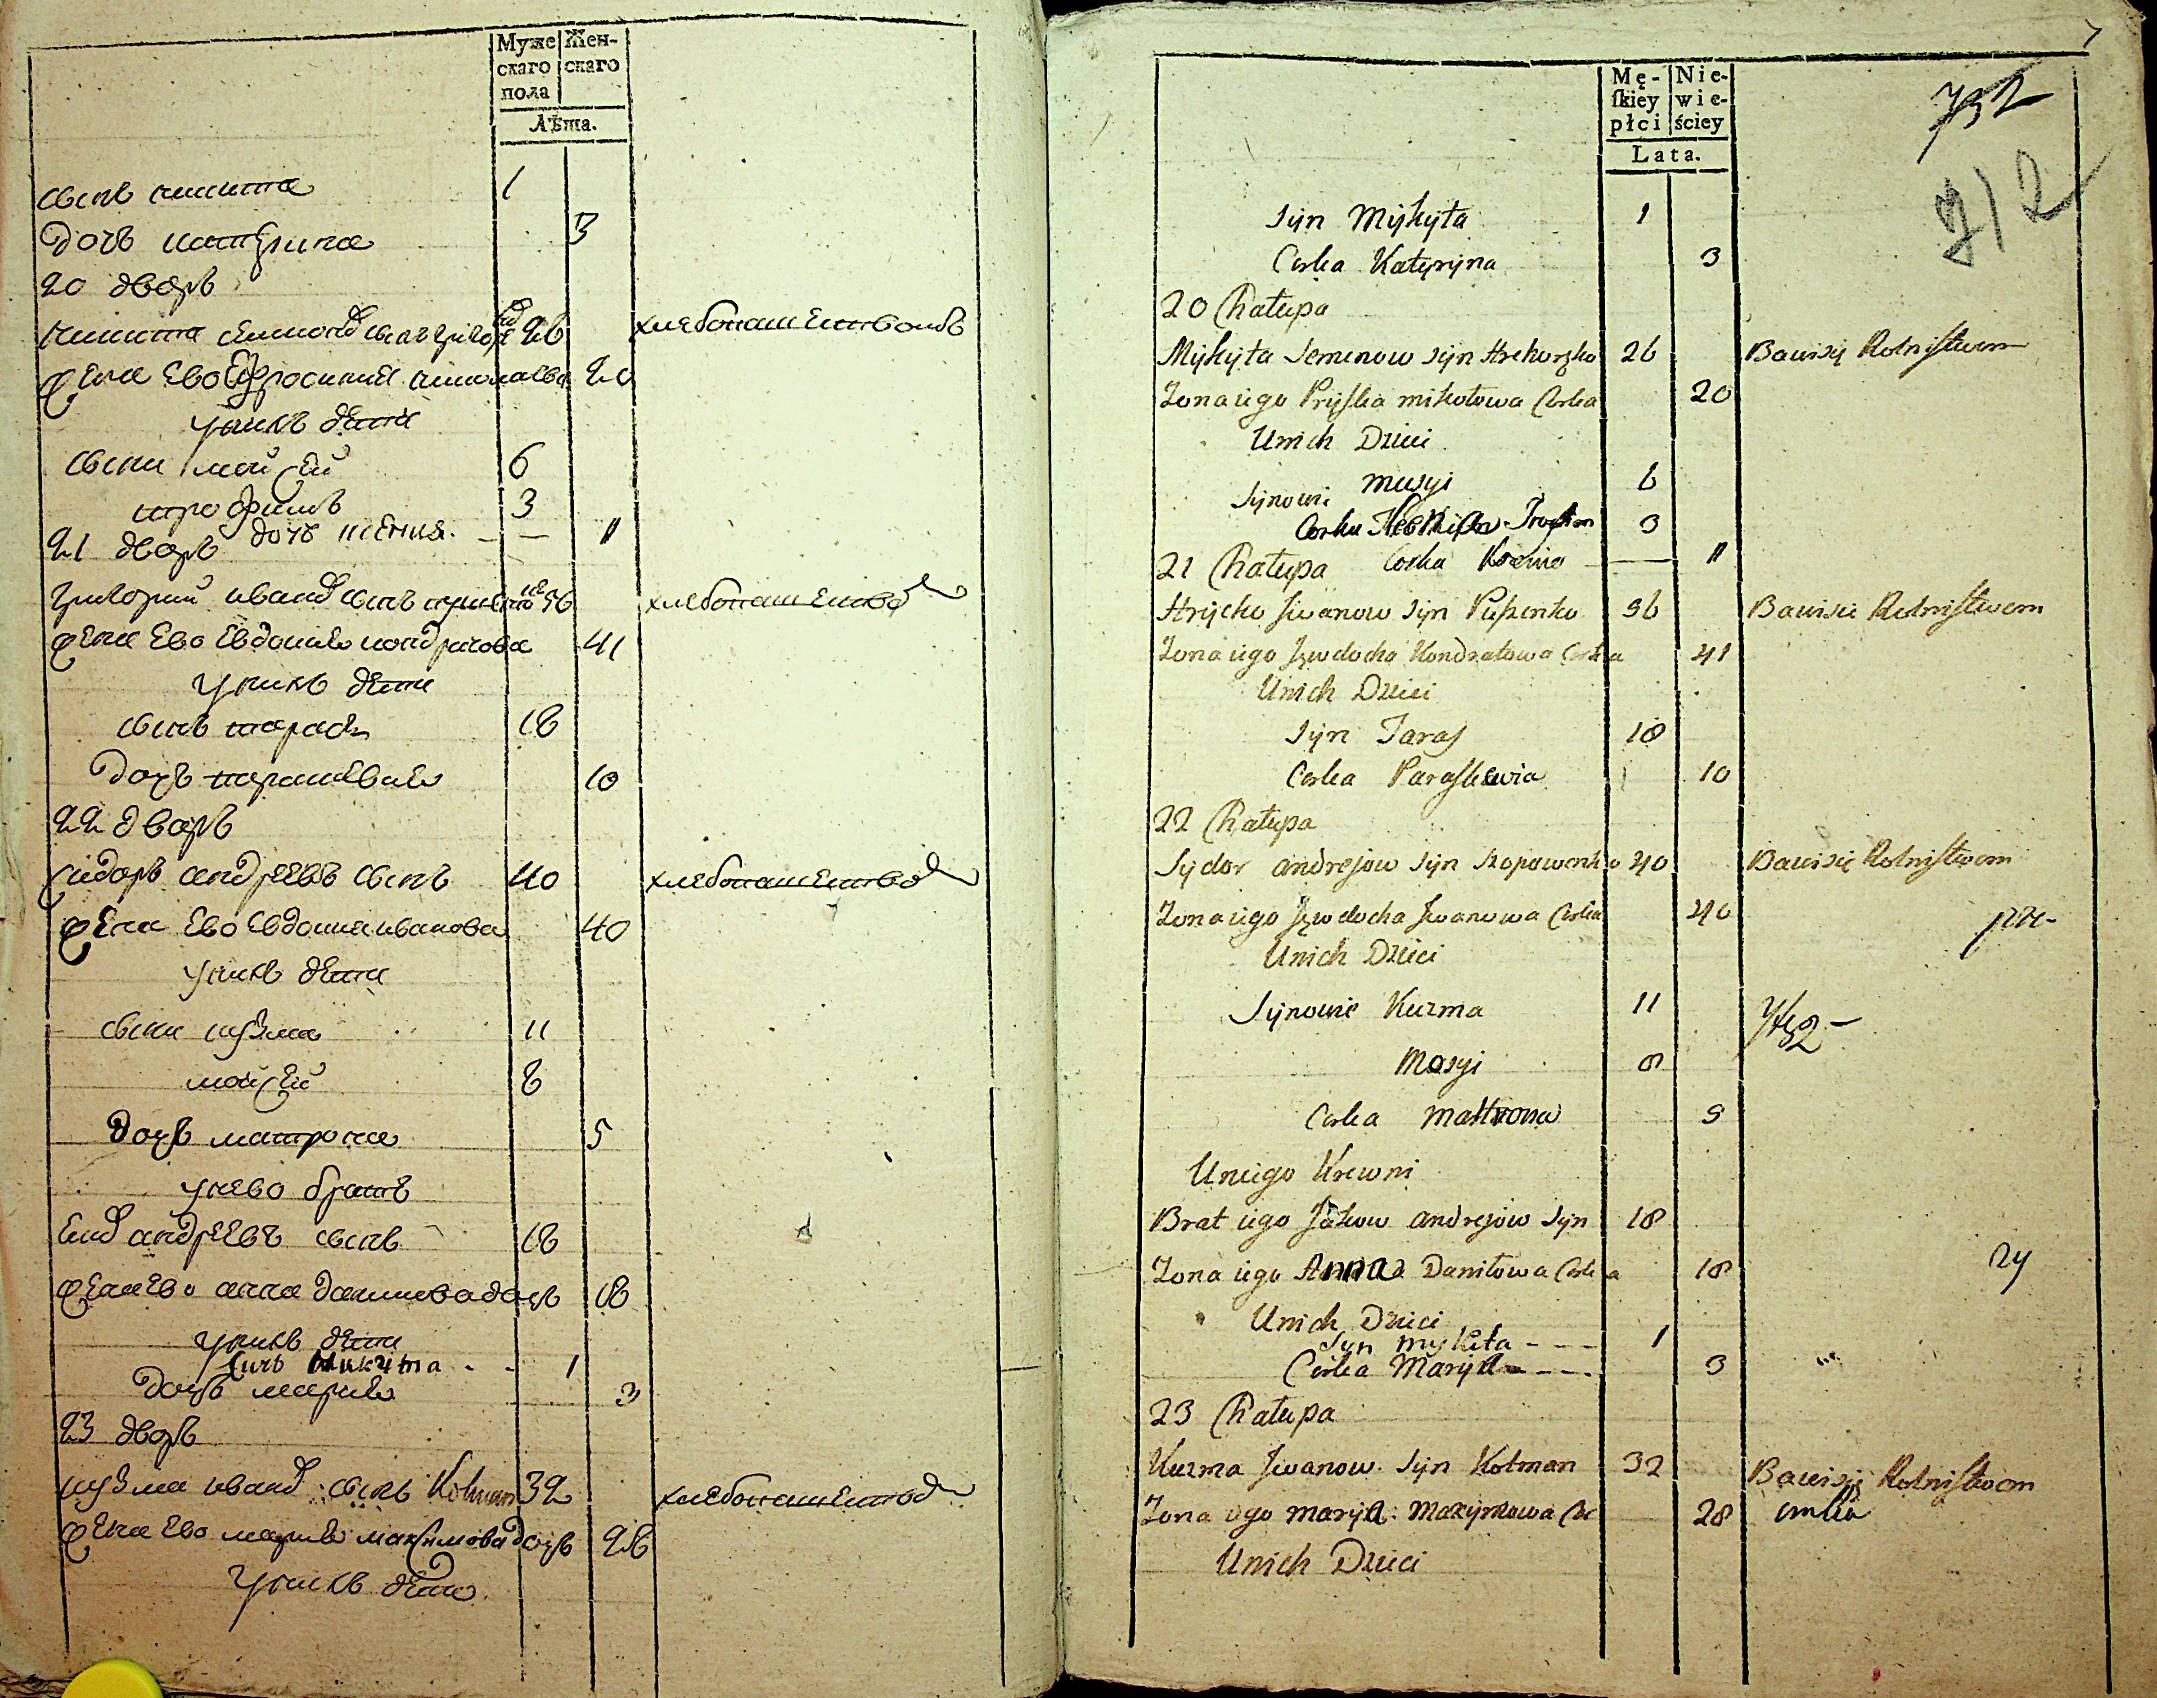 Муже
скаго
пола
Жен-
скаго
Лѣта.
сынъ никита 1
дочь катерина 3
20 дворъ
никита семионов сынъ 26 хлебопашествомъ
жена ево Ефросиния николаева 20
у нихъ дети
сыни мойсей 6
трофимъ 3
21 дворъ дочь ксения. — — 11
григорий иванов сынъ 56 хлебопашествод
жена ево Евдокия кондратова 41
у нихъ дети
сынъ тарасъ 18
дочь параскевия 10
22 дворъ
сидоръ андреевъ сынъ 40 хлебопашествод
жена ево Евдокия иванова 40
у нихъ дети
сыни кузма 11
мойсей 8
дочь матрона 5
у нево братъ
андреевъ сынъ 18
жена ево анна данилова дочь 18
у нихъ дети
синъ никита - - 1
дочь мария 3
23 дворъ
кузма иванов сынъ Kolman 32 хлебопашествод
жена ево мария максимова дочь 28
у нихъ дети
7
Mę-
ſkiey
płci
Nie-
wie-
ściey
Lata.
732
712
Syn Mykyta 1
Corka Kateryna 3
20 Chałupa
Mykyta Semenow syn Hrehorzko 26 Bawisię Rolnistwem
Zona iego Pryska mikołowa Corka 20
Unich Dzieci
Synowie musyi 6
Corka Trochim 3
21 Chałupa Corka Ksenia — 11
Hrycko Jwanow syn 56 Bawisie Rolnistwem
Zona iego Jewdocha Kondratowa Corka 41
Unich Dzieci
Syn Taras 18
Corka Paraskewia 10
22 Chałupa
Sydor andrejow syn 40 Bawisię Rolnistwem
Zona iego Jewdocha Jwanowa Corka 40
Unich Dzieci
Synowie Kuzma 11
Mosyi 8
Corka Matrona 5
Uniego Krewni
Brat iego Jakow andrejow syn 18
Zona iego Anna Daniłowa Corka 18
Unich Dzieci
Syn mykita - - - 1
Corka Maryia - - - . 3
23 Chałupa
Kuzma Jwanow Syn Kolman 32 Bawisię Rolnistwem
Zona iego maryia Maxymowa Cor 28
Unich Dzieci